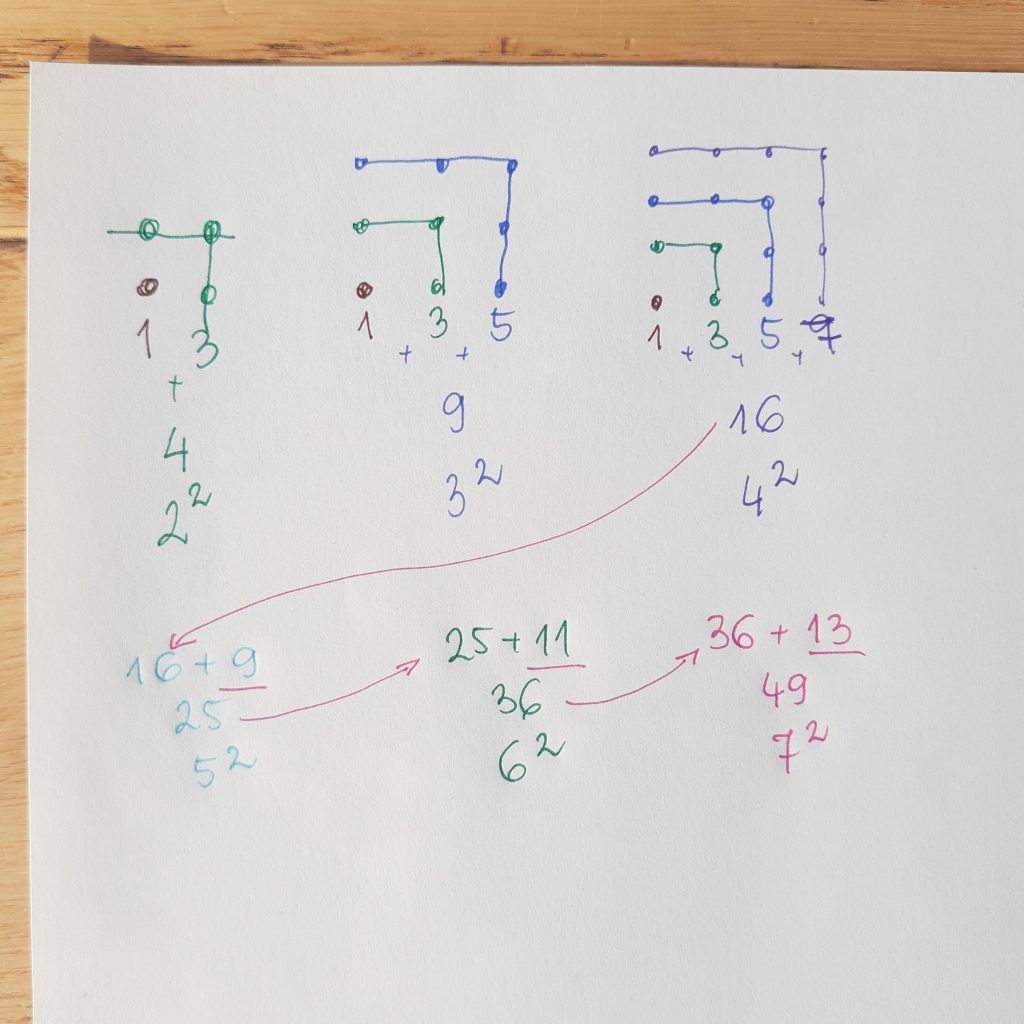 1 3
+
4
2²
1 3 5
+ +
9
3²
1 + 3 + 5 + 7
16
4²
16 + 9
25
5²
25 + 11
36
6²
36 + 13
49
7²